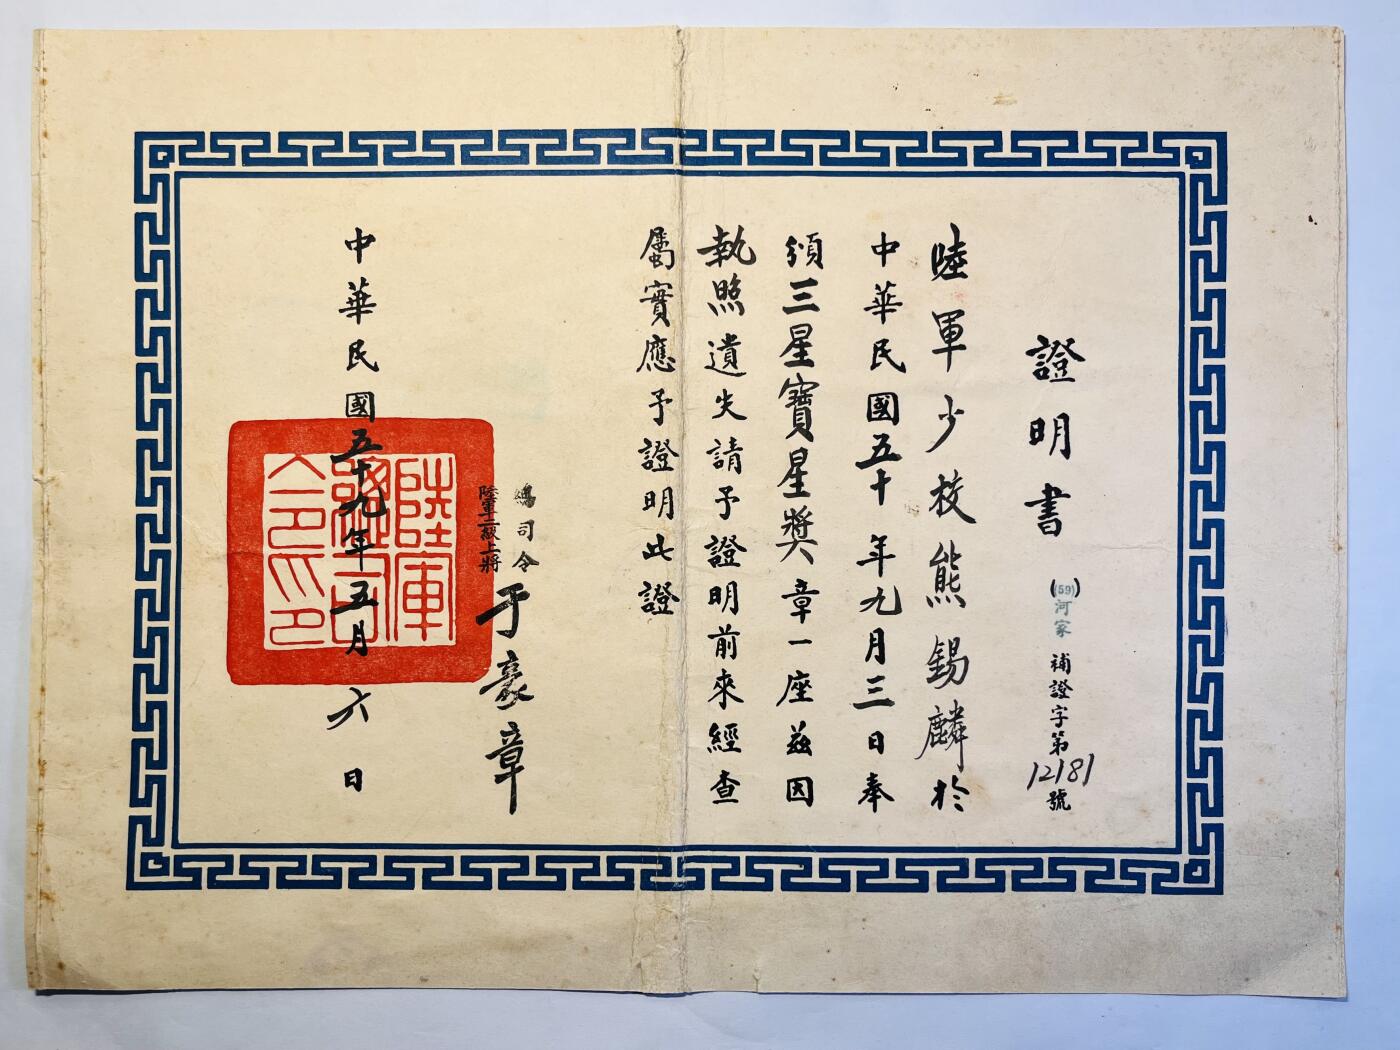 證明書
(59)河家補證字第12181號
陸軍少校熊錫麟於
中華民國五十年九月三日奉
頒三星寶星獎章一座茲因
執照遺失請予證明前來經查
屬實應予證明此證
總司令
陸軍二級上將
于豪章
中華民國五十九年五月六日
陸軍
總司
令印